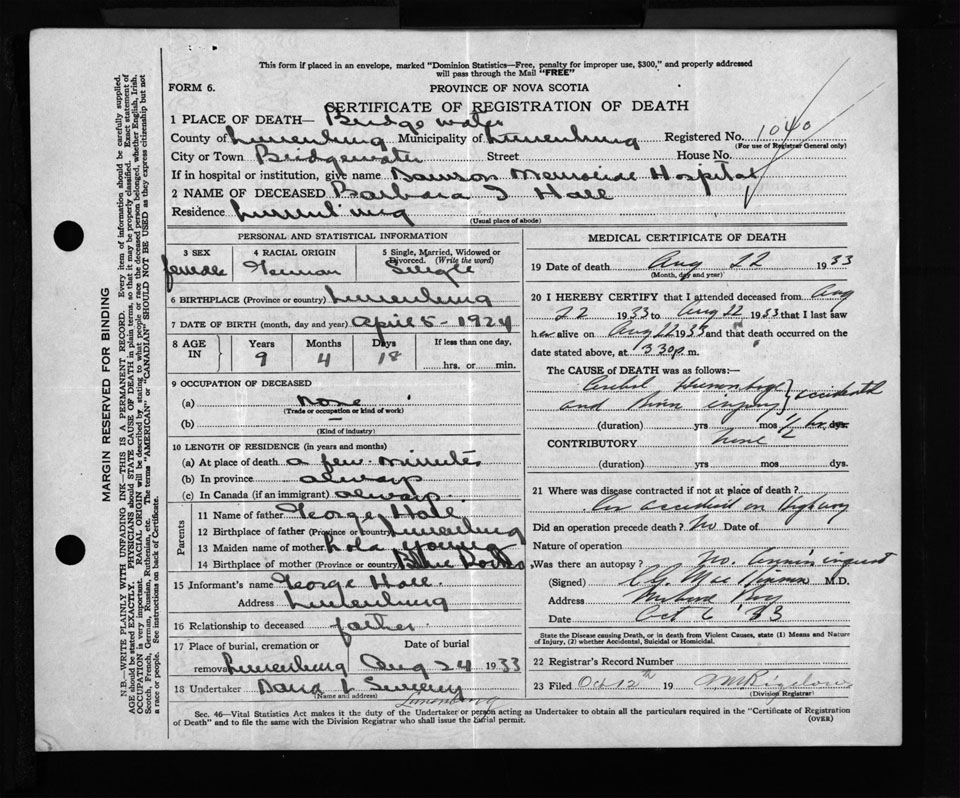 This form if placed in an envelope, marked "Dominion Statistics—Free, penalty for improper use, $300," and properly addressed
will pass through the Mail "FREE"
FORM 6.
PROVINCE OF NOVA SCOTIA
CERTIFICATE OF REGISTRATION OF DEATH
1 PLACE OF DEATH— Bridgewater
County of Lunenburg Municipality of Lunenburg Registered No. 1040
(For use of Registrar General only)
City or Town Bridgewater Street House No.
If in hospital or institution, give name Dawson Memorial Hospital
2 NAME OF DECEASED Barbara I Hall
Residence Lunenburg
(Usual place of abode)
MARGIN RESERVED FOR BINDING
N.B.—WRITE PLAINLY WITH UNFADING INK—THIS IS A PERMANENT RECORD. Every item of information should be carefully supplied.
AGE should be stated EXACTLY. PHYSICIANS should STATE CAUSE OF DEATH in plain terms, so that it may be properly classified. Exact statement of
OCCUPATION is very important. RACIAL ORIGIN will be described by stating to what people or race the deceased person belonged, whether English, Irish,
Scotch, French, German, Russian, Ruthenian, etc. The terms "AMERICAN" or "CANADIAN" SHOULD NOT BE USED as they express citizenship but not
a race or people. See instructions on back of Certificate.
PERSONAL AND STATISTICAL INFORMATION
3 SEX 4 RACIAL ORIGIN 5 Single, Married, Widowed or
Divorced. (Write the word)
female German Single
6 BIRTHPLACE (Province or country) Lunenburg
7 DATE OF BIRTH (month, day and year) April 5 - 1924
8 AGE IN Years Months Days If less than one day,
9 4 18 hrs. or min.
9 OCCUPATION OF DECEASED
(a) none
(Trade or occupation or kind of work)
(b) —
(Kind of industry)
10 LENGTH OF RESIDENCE (in years and months)
(a) At place of death a few minutes
(b) In province always
(c) In Canada (if an immigrant) always
Parents
11 Name of father George Hall
12 Birthplace of father (Province or country) Lunenburg
13 Maiden name of mother Lola Young
14 Birthplace of mother (Province or country) Blue Rocks
15 Informant's name George Hall
Address Lunenburg
16 Relationship to deceased father
17 Place of burial, cremation or Date of burial
removal Lunenburg Aug 24 1933
18 Undertaker David L Sweeny
(Name and address)
Lunenburg
MEDICAL CERTIFICATE OF DEATH
19 Date of death Aug 22 1933
(Month, day and year)
20 I HEREBY CERTIFY that I attended deceased from Aug
22 1933 to Aug 22 1933 that I last saw
her alive on Aug 22 1933 and that death occurred on the
date stated above, at 3 30 p. m.
The CAUSE of DEATH was as follows:
Cerebral Hemorrhage
and Brain injury } accidental
(duration) yrs mos ½ hr. dys.
CONTRIBUTORY none
(duration) yrs mos dys.
21 Where was disease contracted if not at place of death?
Car accident on Highway
Did an operation precede death? No Date of
Nature of operation
Was there an autopsy? No. inquest
(Signed) M.D.
Address
Date Oct 6 '33
State the Disease causing Death, or in death from Violent Causes, state (1) Means and Nature
of Injury, (2) whether Accidental, Suicidal or Homicidal.
22 Registrar's Record Number
23 Filed Oct 12th 19
(Division Registrar)
Sec. 46—Vital Statistics Act makes it the duty of the Undertaker or person acting as Undertaker to obtain all the particulars required in the "Certificate of Registration
of Death" and to file the same with the Division Registrar who shall issue the burial permit.
(OVER)